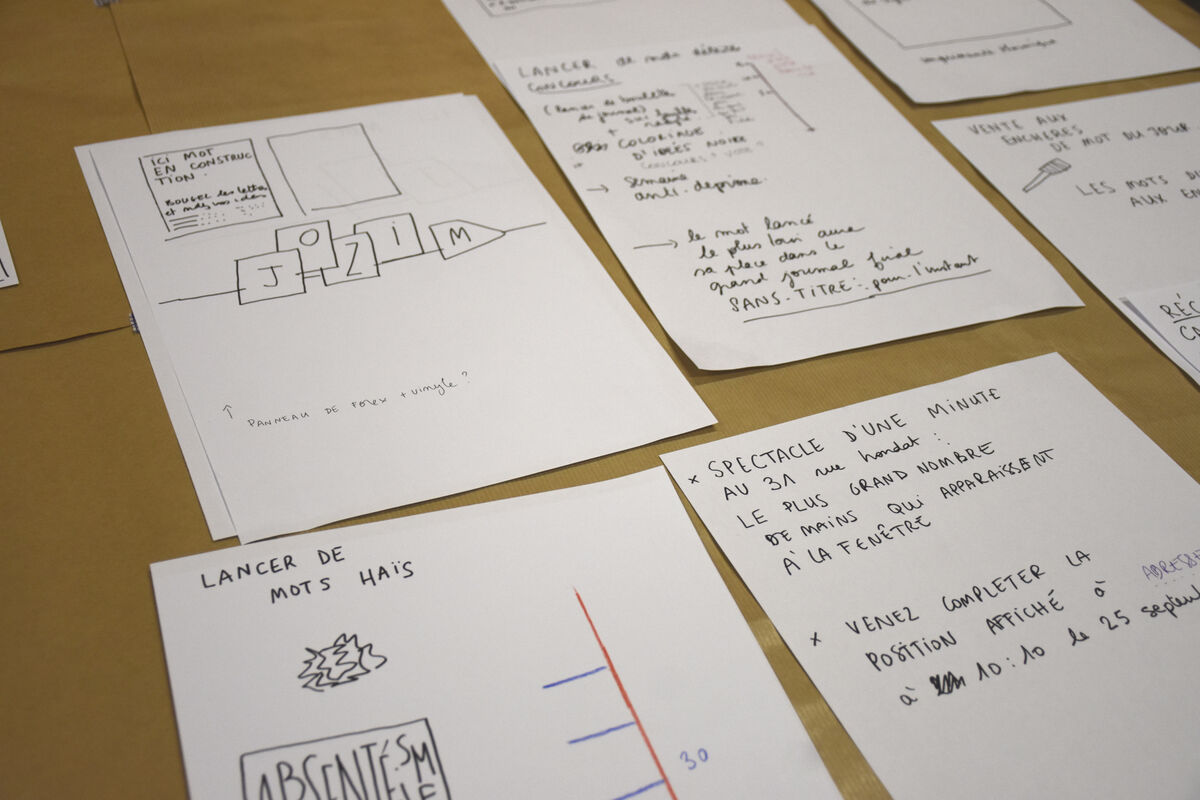 ICI MOT
EN CONSTRUC
TION.
BOUGEZ les lettres
et mdez vos idées
J O Z I M
↑ PANNEAU DE forex + vinyle ?
LANCER de mots
CONCOURS
(lancer de boulette
de journal)
+
COLORIAGE
D'IDÉES NOIRE
CONCOURS + VOTE
→ Semaine
anti-deprime.
→ le mot lancé
le plus loin aura
sa place dans le
grand journal final
SANS-TITRE: pour l'instant
VENTE AUX
ENCHÈRES
DE MOT DU JOUR
LES MOTS DU
AUX EN
RÉC
LANCER DE
MOTS HAÏS
ABSENTÉ.SM
30
× SPECTACLE D'UNE MINUTE
AU 31 rue hondat :
LE PLUS GRAND NOMBRE
DE MAINS QUI APPARAISSENT
À LA FENÊTRE
× VENEZ COMPLETER LA
POSITION AFFICHÉ à ADRESSE
à 10:10 le 25 septem